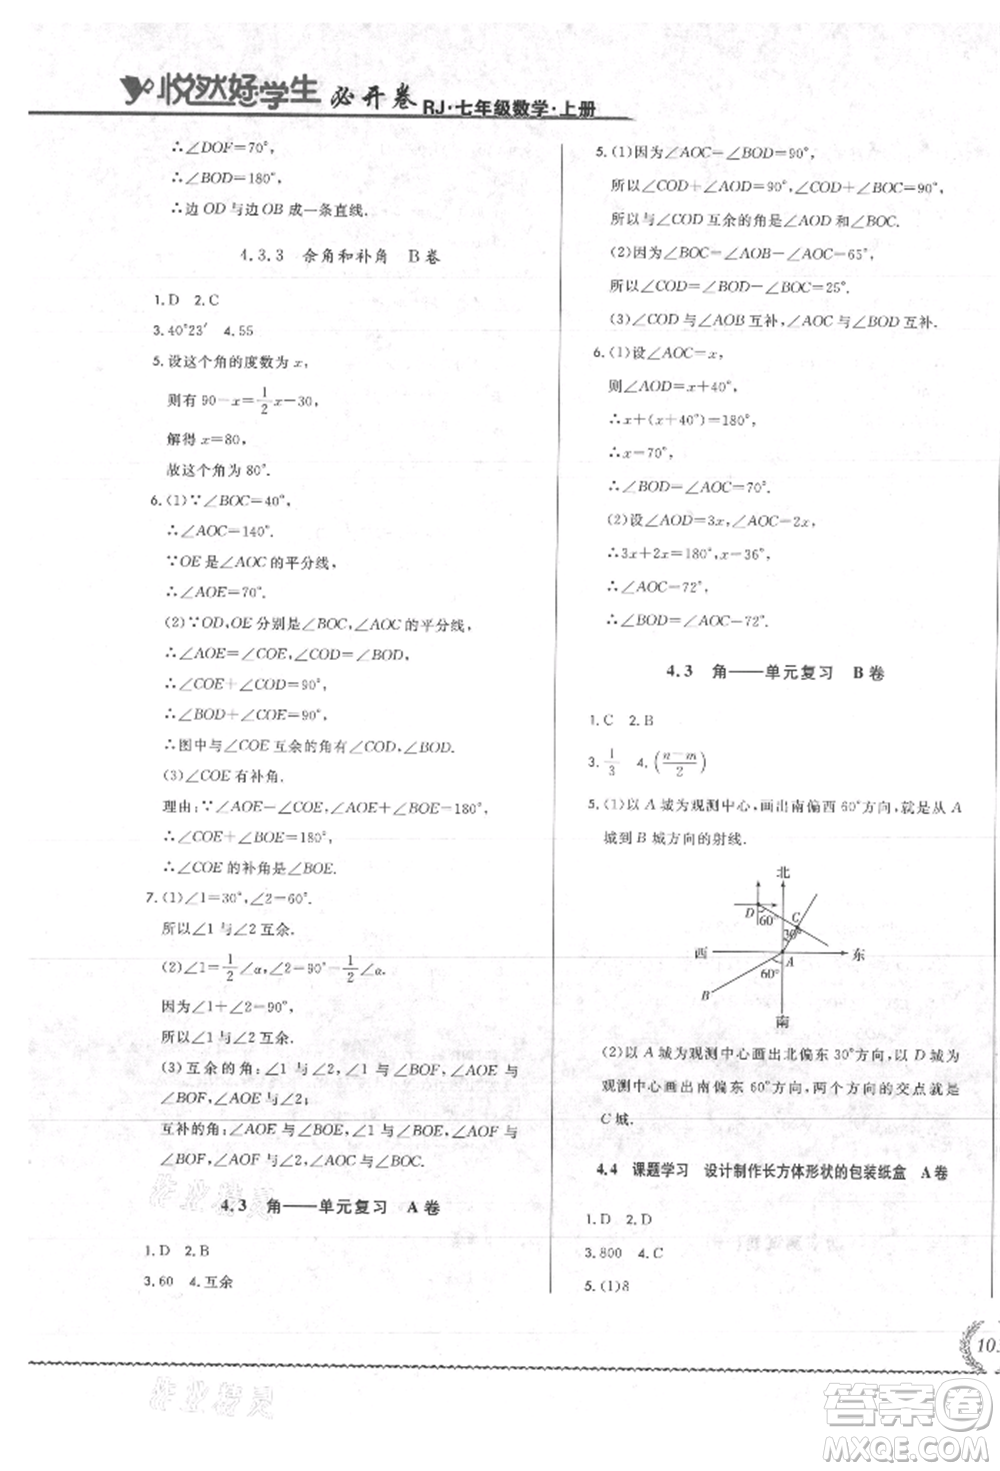 悦然好学生 必开卷 RJ·七年级数学·上册
∴∠DOF=70°,
∴∠BOD=180°,
∴边OD与边OB成一条直线.
4.3.3 余角和补角 B卷
1.D 2.C
3.40°23′ 4.55
5.设这个角的度数为x,
则有90-x=1/2x-30,
解得x=80,
故这个角为80°.
6.(1)∵∠BOC=40°,
∴∠AOC=140°.
∵OE是∠AOC的平分线,
∴∠AOE=70°.
(2)∵OD,OE分别是∠BOC,∠AOC的平分线,
∴∠AOE=∠COE,∠COD=∠BOD,
∴∠COE+∠COD=90°,
∴∠BOD+∠COE=90°,
∴图中与∠COE互余的角有∠COD,∠BOD.
(3)∠COE有补角.
理由:∵∠AOE=∠COE,∠AOE+∠BOE=180°,
∴∠COE+∠BOE=180°,
∴∠COE的补角是∠BOE.
7.(1)∠1=30°,∠2=60°.
所以∠1与∠2互余.
(2)∠1=1/2∠α,∠2=90°-1/2∠α.
因为∠1+∠2=90°,
所以∠1与∠2互余.
(3)互余的角:∠1与∠2,∠1与∠BOF,∠AOE
与∠BOF,∠AOE与∠2;
互补的角:∠AOE与∠BOE,∠1与∠BOE,∠AOF与
∠BOF,∠2与∠AOF.
4.3 角——单元复习 A卷
1.D 2.B
3.60 4.互余
5.(1)因为∠AOC=∠BOD=90°,
所以∠COD+∠AOD=90°,∠COD+∠BOC=90°,
所以与∠COD互余的角是∠AOD和∠BOC.
(2)因为∠BOC=∠AOB-∠AOC=65°,
所以∠COD=∠BOD-∠BOC=25°.
(3)∠COD与∠AOB互补,∠AOC与∠BOD互补.
6.(1)设∠AOC=x,
则∠AOD=x+40°,
∴x+(x+40°)=180°,
∴x=70°,
∴∠BOD=∠AOC=70°.
(2)设∠AOD=3x,∠AOC=2x,
∴3x+2x=180°,x=36°,
∴∠AOC=72°,
∴∠BOD=∠AOC=72°.
4.3 角——单元复习 B卷
1.C 2.B
3.1/3 4.(n-m/2)
5.(1)以A城为观测中心,画出南偏西60°方向,就是从A
城到B城方向的射线.
北
D 60° C
30°
西 A 东
60°
B
南
(2)以A城为观测中心画出北偏东30°方向,以D城为
观测中心画出南偏东60°方向,两个方向的交点就是
C城.
4.4 课题学习 设计制作长方体形状的包装纸盒 A卷
1.D 2.D
3.800 4.C
5.(1)8
作业精灵
作业精灵
答案卷
MXQE.COM